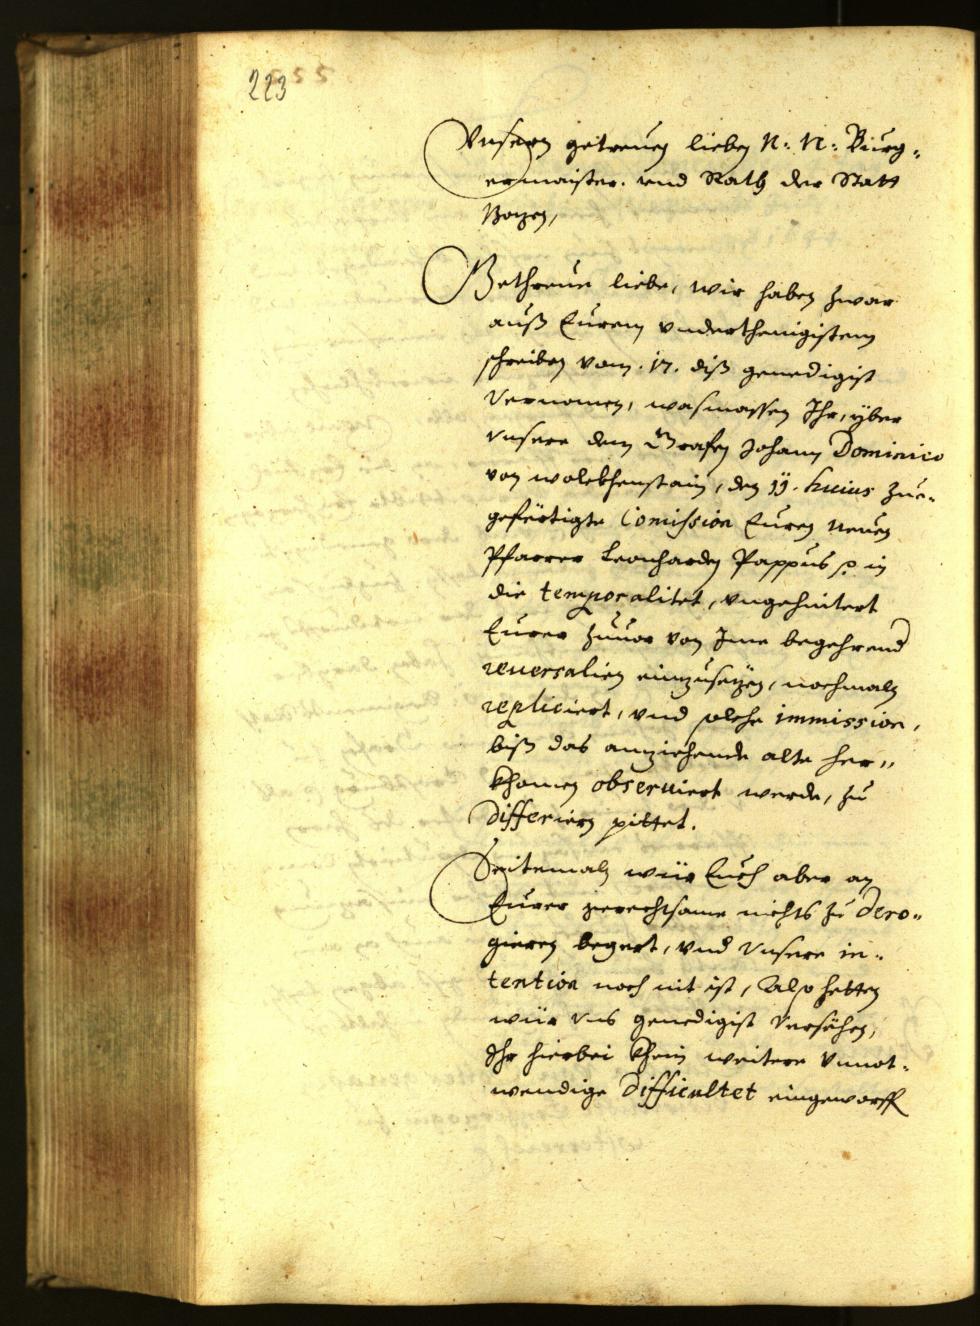 223
555
Vnsern getreuen lieben N: N: Burg-
ermaister. vnd Rath der Statt
Bozen,
Gethreue liebe, wir haben zwar
auß Eurem vnderthenigistem
schreiben vom .17. diß genedigist
vernomen, wasmassen Ihr, yber
vnsere dem Grafen Johann Dominico
von Wolckhenstain, den 11. huius zue-
gefertigte Comission Euren neuen
Pfarrer Leonharden Pappus in
die temporalitet, vngehintert
Eurer zuuor von Ime begehrend
reuersalien einzusezen, nochmaln
repliciert, vnd solche immission,
biß das anziehende alte her-
khomen obseruiert werde, zu
differiern pittet.
Seitemaln wür Euch aber an
Eurer gerechtsame nichts zu dero-
gieren begert, vnd vnsere in-
tention noch nit ist, Also hetten
wür vns genedigist versehen,
Ihr hierbei khein weitere vnnot-
wendige difficultet eingeworff